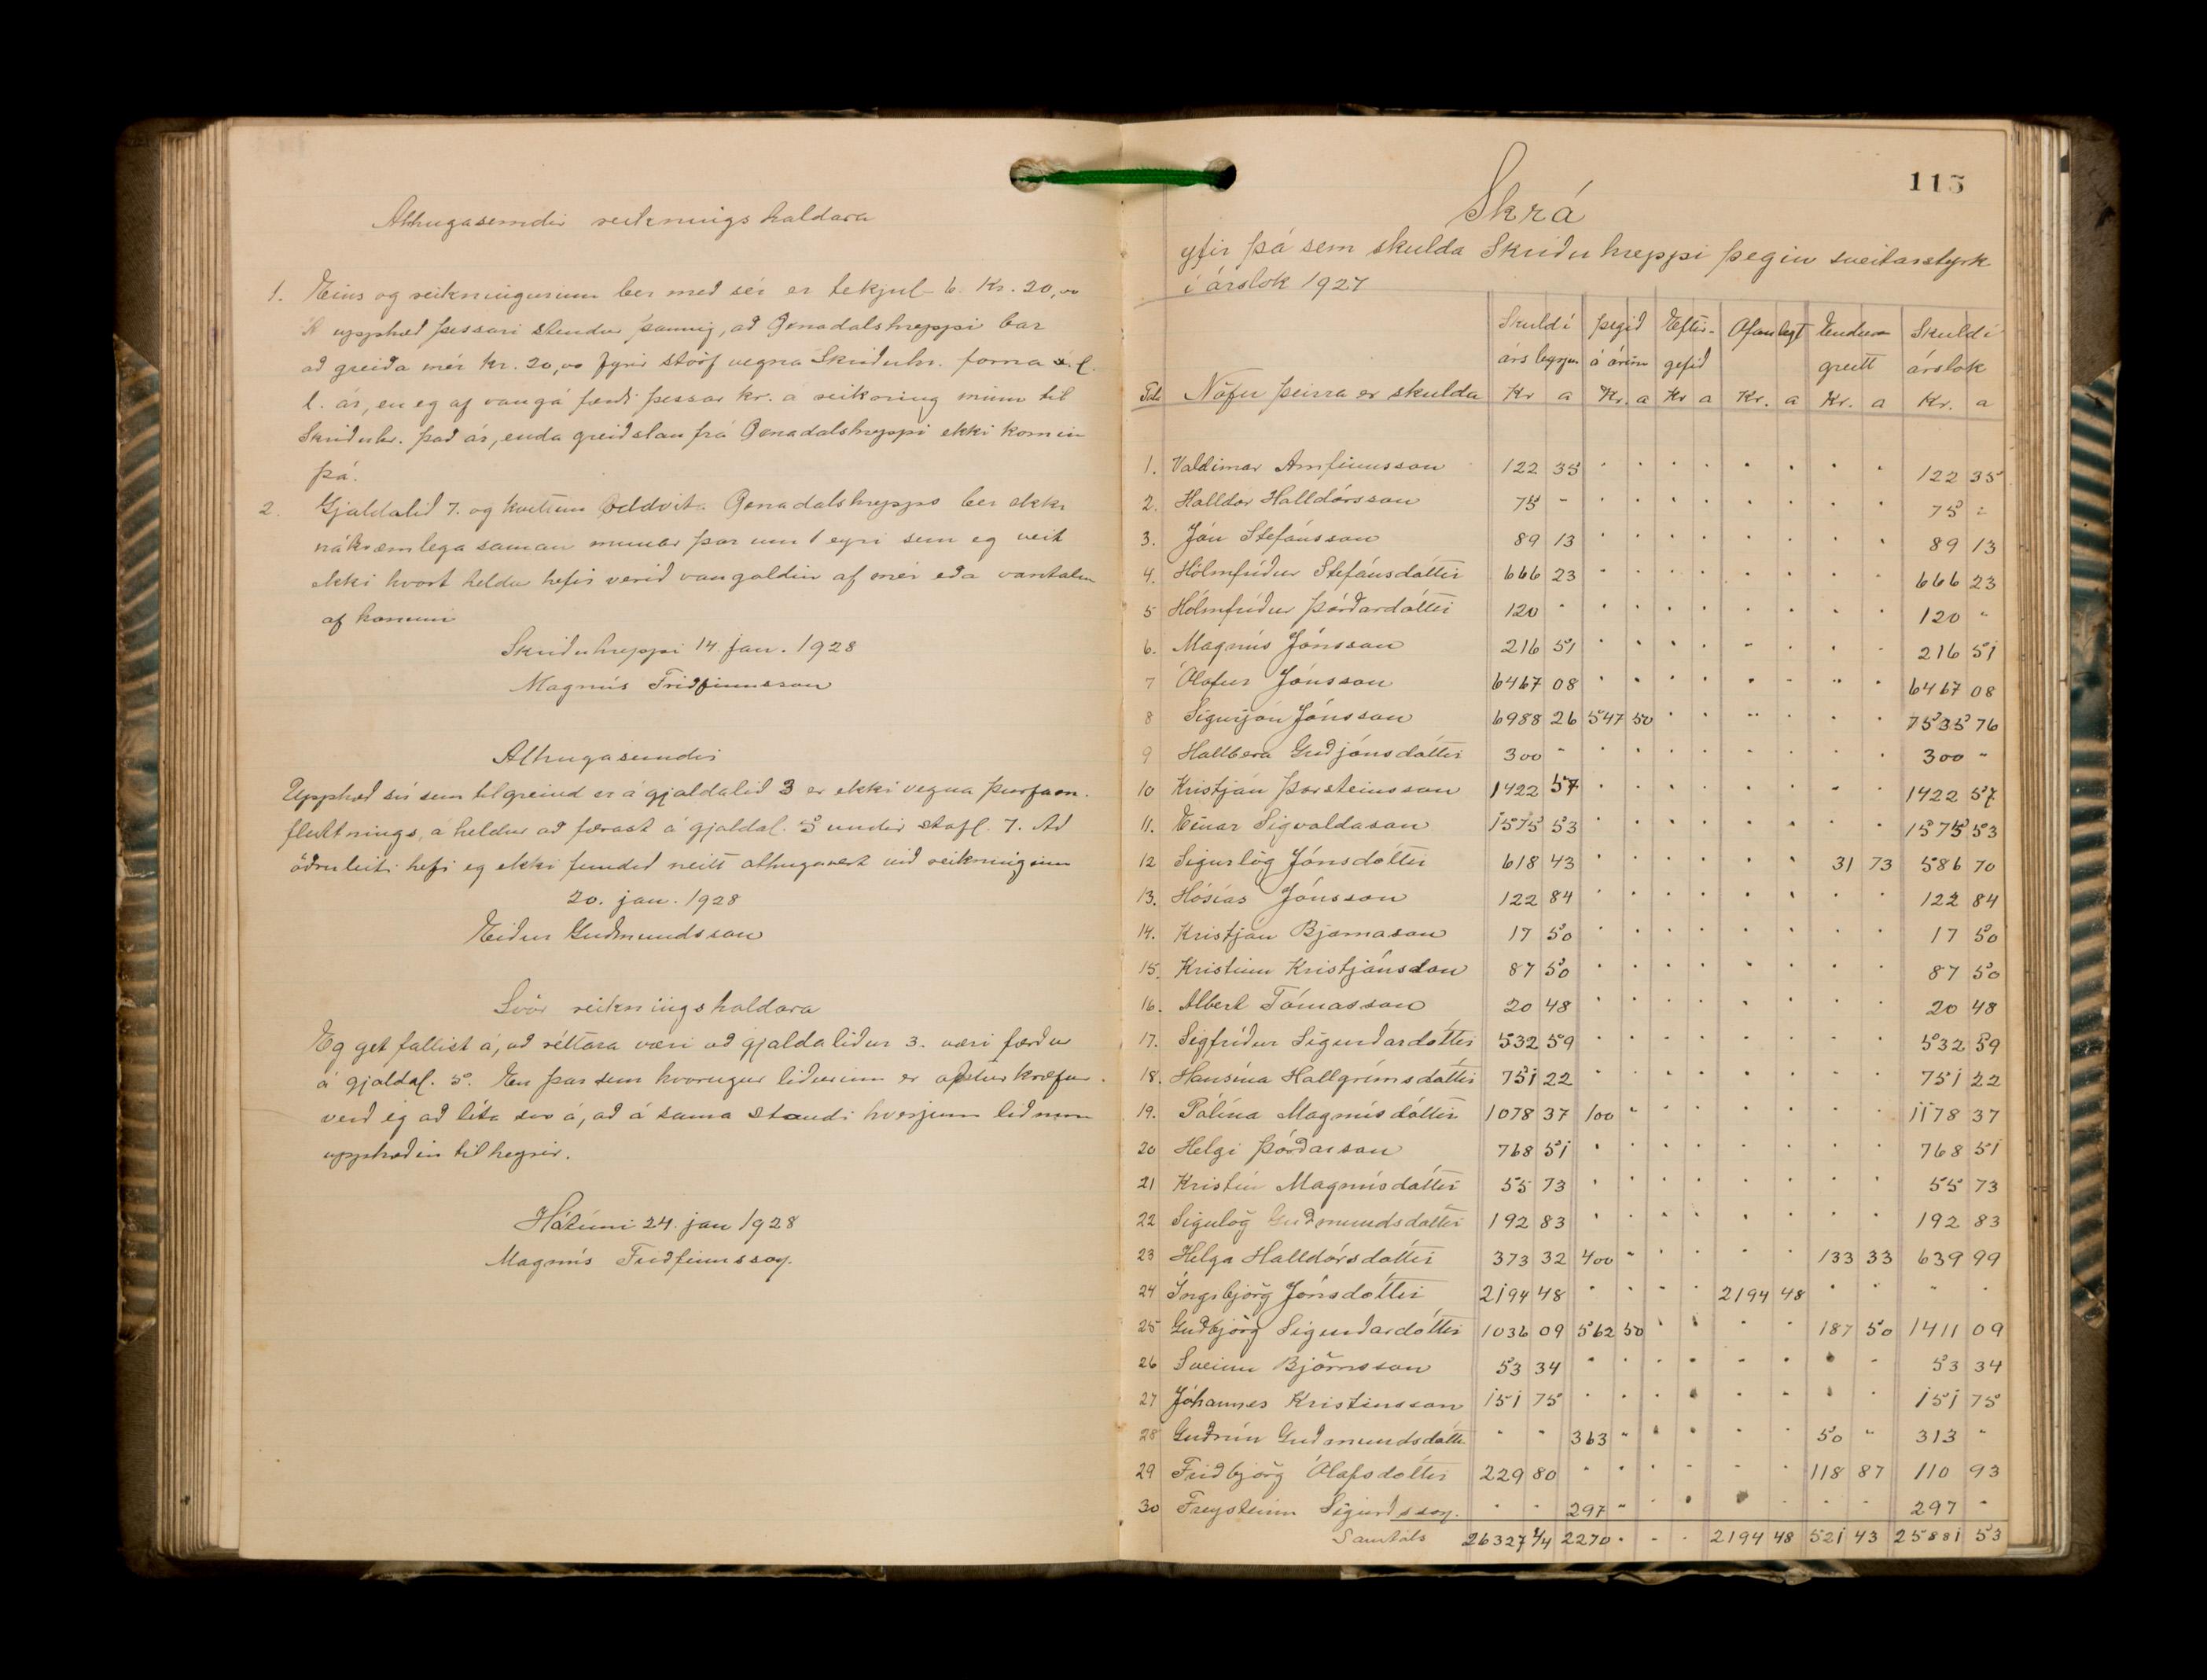 Athugasemdir reiknings haldara
1. Eins og reikningurinn ber með sér er tekjul. 6. Kr. 20,00
upphæð þessari stendur þannig, að Öxnadalshreppi bar
að greiða mér kr. 20,00 fyrir störf vegna Skriðuhr. forna
l. ár, en eg af vangá færði þessar kr. á reikning minn til
Skriðuhr. það ár, enda greiðslan frá Öxnadalshreppi ekki komin
þá.
2. Gjaldalið 7. og kvittun oddvita Öxnadalshrepps ber ekki
nákvæmlega saman munar þar um 1 eyri sem eg veit
ekki hvort heldur hefir verið vangoldin af mér eða vantalin
af honum
Skriðuhreppi 14 jan. 1928
Magnús Friðfinnsson
Athugasemdir
Upphæð sú sem tilgreind er á gjaldalið 3 er ekki vegna þurfam.
fluttnings, á heldur að færast á gjaldal. 5 undir stafl. 7. Að
öðruleiti hefi eg ekki fundið neitt athugavert við reikninginn
20. jan. 1928
Eiður Guðmundsson
Svör reikningshaldara
Eg get fallist á, að réttara væri að gjaldaliður 3. væri færður
á gjaldal. 5. En þar sem hvorugur liðurinn er afturkræfur
verð ég að líta svo á, að á sama standi hverjum liðnum
upphæðin tilheyrir.
Hátúni 24. jan 1928
Magnús Friðfinnsson.
115
Skrá
yfir þá sem skulda Skriðuhreppi þegin sveitarstyrk
í árslok 1927
Skuld í þegið Eftir- Afanlagt Endur Skuld í
árs byrjun á árinu gefið greitt árslok
Tala Nöfn þeirra er skulda Kr a Kr. a Kr a Kr. a Kr. a Kr. a
1. Valdimar Arnfinnsson 122 35 " " " " " " " " 122 35
2. Halldór Halldórsson 75 - " " " " " " " " 75 "
3. Jón Stefánsson 89 13 " " " " " " " " 89 13
4. Hólmfríður Stefánsdóttir 666 23 " " " " " " " " 666 23
5 Hólmfríður Þórðardóttir 120 " " " " " " " " " 120 "
6. Magnús Jónsson 216 51 " " " " " " " " 216 51
7 Ólafur Jónsson 6467 08 " " " " " " " " 6467 08
8 Sigurjón Jónsson 6988 26 547 50 " " " " " " 7535 76
9 Hallbera Guðjónsdóttir 300 " " " " " " " " " 300 "
10 Kristján Þorsteinsson 1422 57 " " " " " " " " 1422 57
11. Einar Sigvaldason 1575 53 " " " " " " " " 1575 53
12 Sigurlög Jónsdóttir 618 43 " " " " " " 31 73 586 70
13. Hósías Jónsson 122 84 " " " " " " " " 122 84
14. Kristján Bjarnason 17 50 " " " " " " " " 17 50
15. Kristinn Kristjánsson 87 50 " " " " " " " " 87 50
16. Albert Tómasson 20 48 " " " " " " " " 20 48
17. Sigfríður Sigurðardóttir 532 59 " " " " " " " " 532 59
18. Hansína Hallgrímsdóttir 751 22 " " " " " " " " 751 22
19. Pálína Magnúsdóttir 1078 37 100 " " " " " " " 1178 37
20 Helgi Þórðarson 768 51 " " " " " " " " 768 51
21 Kristín Magnúsdóttir 55 73 " " " " " " " " 55 73
22 Sigulög Guðmundsdóttir 192 83 " " " " " " " " 192 83
23 Helga Halldórsdóttir 373 32 400 " " " " " 133 33 639 99
24 Ingibjörg Jónsdóttir 2194 48 " " " " 2194 48 " " " "
25 Guðbjörg Sigurðardóttir 1036 09 562 50 " " " " 187 50 1411 09
26 Sveinn Björnsson 53 34 " " " " " " " " 53 34
27 Jóhannes Kristinsson 151 75 " " " " " " " " 151 75
28 Guðrún Guðmundsdóttir " " 363 " " " " " 50 " 313 "
29 Friðbjörg Ólafsdóttir 229 80 " " " " " " 118 87 110 93
30 Freysteinn Sigurðsson. " " 297 " " " " " " " 297 "
Samtals 26327 44 2270 " " " 2194 48 521 43 25881 53